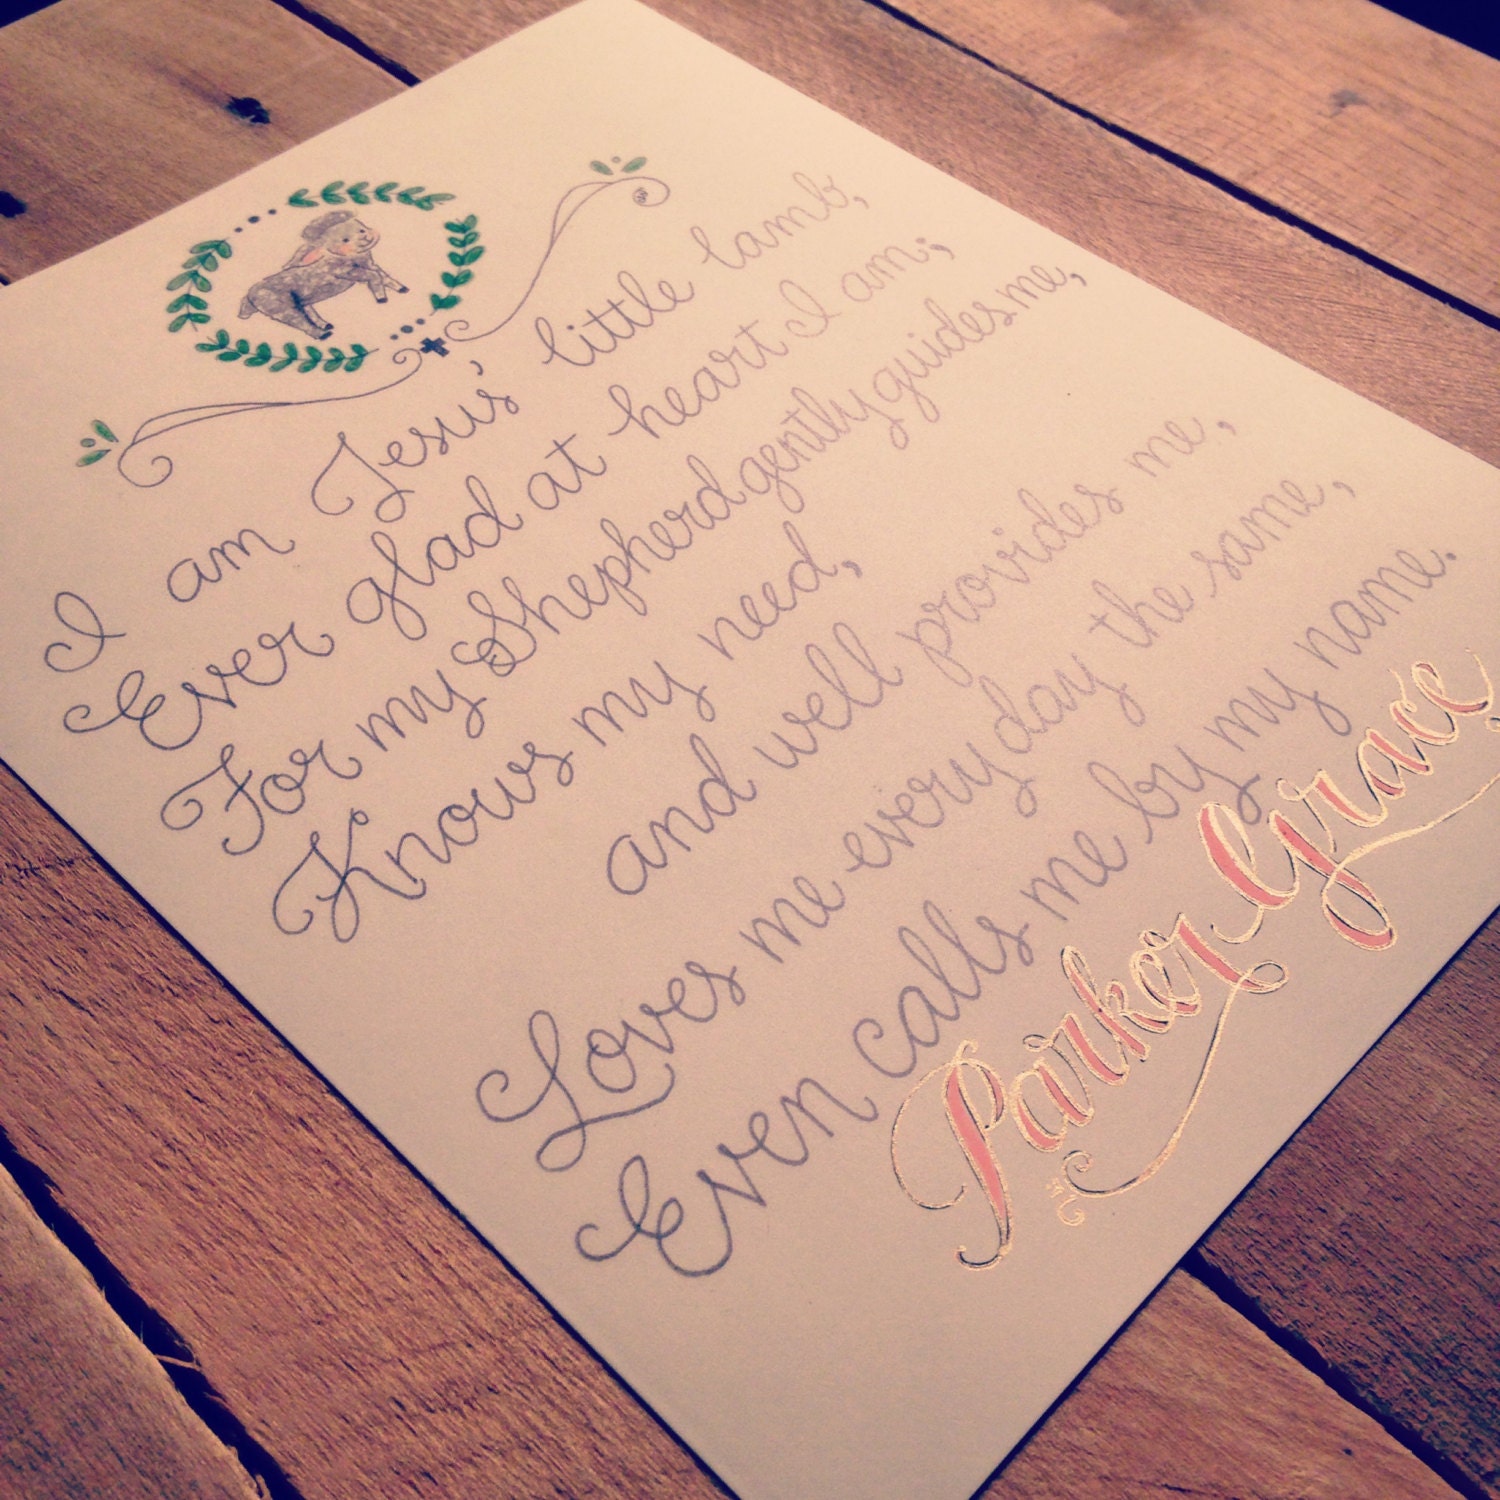 I am Jesus' little lamb,
Ever glad at heart I am;
For my Shepherd gently guides me,
Knows my need,
and well provides me,
Loves me every day the same,
Even calls me by my name.
Parker Grace